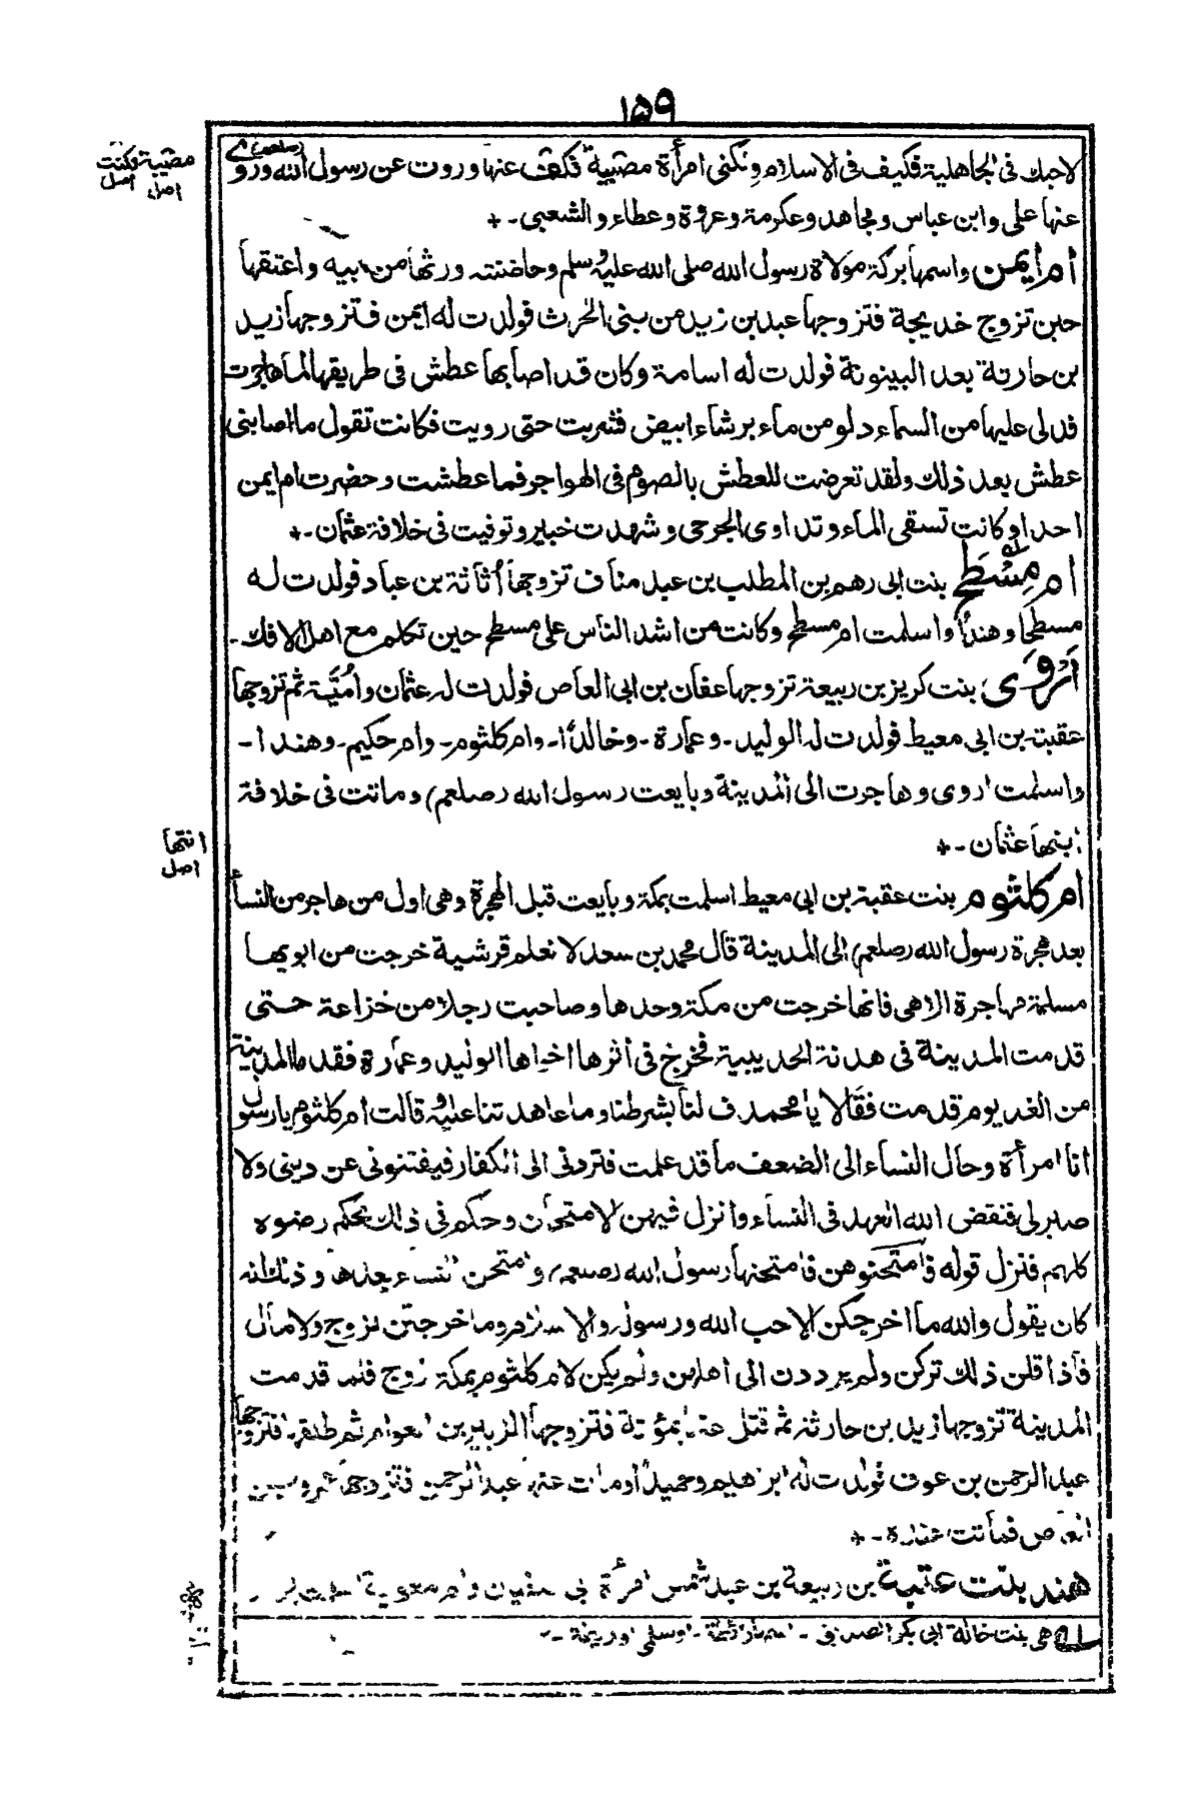 ١٥٩
لاحبك فى الجاهلية فكيف فى الاسلام ولكنى امرأة مصبية فكف عنها وروت عن رسول الله (صلعم) وروى
مصيبة فكنت
اصل اصل
عنها على وابن عباس ومجاهد وعكرمة وعروة وعطاء والشعبى -+
ام ايمن واسمها بركة مولاة رسول الله صلى الله عليه وسلم وحاضنته ورثها من ابيه واعتقها
حين تزوج خديجة فتزوجها عبد بن زيد من بنى الحرث فولدت له ايمن فتزوجها زيد
بن حارثة بعد البينونة فولدت له اسامة وكان قد اصابها عطش فى طريقها لما هاجرت
فدلى عليها من السماء دلو من ماء برشاء ابيض فشربت حتى رويت فكانت تقول ما اصابنى
عطش بعد ذلك ولقد تعرضت للعطش بالصوم فى الهواجر فما عطشت وحضرت ام ايمن
احدا وكانت تسقى الماء وتداوى الجرحى وشهدت خيبر وتوفيت فى خلافة عثمان -+
ام مِسْطَح بنت ابى رهم بن المطلب بن عبد مناف تزوجها أثاثة بن عباد فولدت له
مسطحا وهندًا واسلمت ام مسطح وكانت من اشد الناس على مسطح حين تكلم مع اهل الافك -
أَرْوَى بنت كريز بن ربيعة تزوجها عفان بن ابى العاص فولدت له عثمان وأمَيّة ثم تزوجها
عقبة بن ابى معيط فولدت له الوليد - وعمارة - وخالدًا - وام كلثوم - وام حكيم - وهندا -
واسلمت اروى وهاجرت الى المدينة وبايعت رسول الله (صلعم) وماتت فى خلافة
ابنها عثمان -+
انتها
اصل
ام كلثوم بنت عقبة بن ابى معيط اسلمت بمكة وبايعت قبل الهجرة وهى اول من هاجر من النساء
بعد هجرة رسول الله (صلعم) الى المدينة قال محمد بن سعد لا نعلم قرشية خرجت من ابويها
مسلمة مهاجرة الا هى فانها خرجت من مكة وحدها وصاحبت رجلا من خزاعة حتى
قدمت المدينة فى هدنة الحديبية فخرج فى اثرها اخواها الوليد وعمارة فقدما المدينة
من الغد يوم قدمت فقالا يا محمد ف لنا بشرطنا وما عاهدتنا عليه قالت ام كلثوم يا رسول
انا امرأة وحال النساء الى الضعف ما قد علمت فتردنى الى الكفار فيفتنونى عن دينى ولا
صبر لى فنقض الله العهد فى النساء وانزل فيهن الامتحان وحكم فى ذلك بحكم رضوه
كلهم فنزل قوله فامتحنوهن فامتحنها رسول الله (صلعم) وامتحن النساء بعدها وذلك انه
كان يقول والله ما اخرجكن الا حب الله ورسوله والاسلام وما خرجتن لزوج ولا مال
فاذا قلن ذلك تركن ولم يرددن الى اهلهن ولم يكن لام كلثوم بمكة زوج فلما قدمت
المدينة تزوجها زيد بن حارثة ثم قتل عنها بمؤتة فتزوجها الزبير بن العوام ثم طلقها فتزوجها
عبد الرحمن بن عوف فولدت له ابرهيم وحميدًا ومات عنها عبد الرحمن فتزوجها عمرو بن
العاص فماتت عنده -+
هند بنت عتبة بن ربيعة بن عبد شمس امرأة ابى سفيان وام معوية
له هى بنت خالة ابى بكر الصديق -